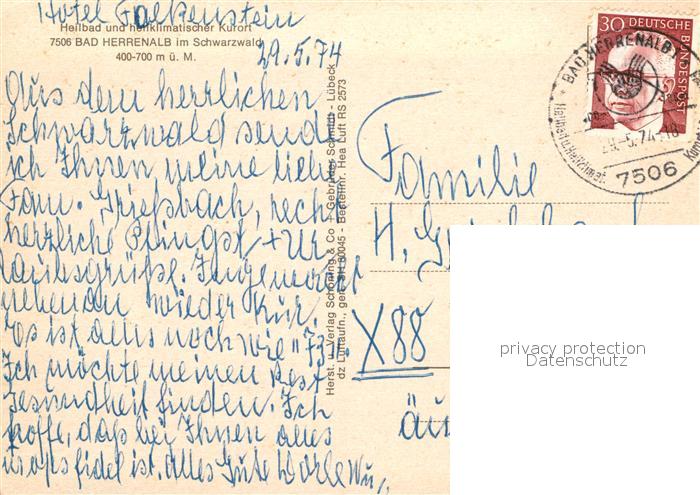 Hotel Falkenstein
Heilbad und heilklimatischer Kurort
7506 BAD HERRENALB im Schwarzwald
400-700 m ü. M.
29.5.74
Aus dem herrlichen
Schwarzwald sende
ich Ihnen, meine liebe
Fam. Grießbach, recht
herzliche Pfingst + Ur
laubsgrüße.
nehmen wieder Kur.
Es ist alles noch wie "73".
Ich möchte meinen Rest
Gesundheit finden. Ich
hoffe, daß bei Ihnen alles
mopsfidel ist. Alles Gute
Herst. u. Verlag Schöning & Co + Gebrüder Schmidt - Lübeck
dz Luftaufn., gen. SH 80045 - Bestellnr. Hea Luft RS 2573
30 DEUTSCHE BUNDESPOST
BAD HERRENALB
-5.74-18
7506
Familie
H.
X88
privacy protection
Datenschutz